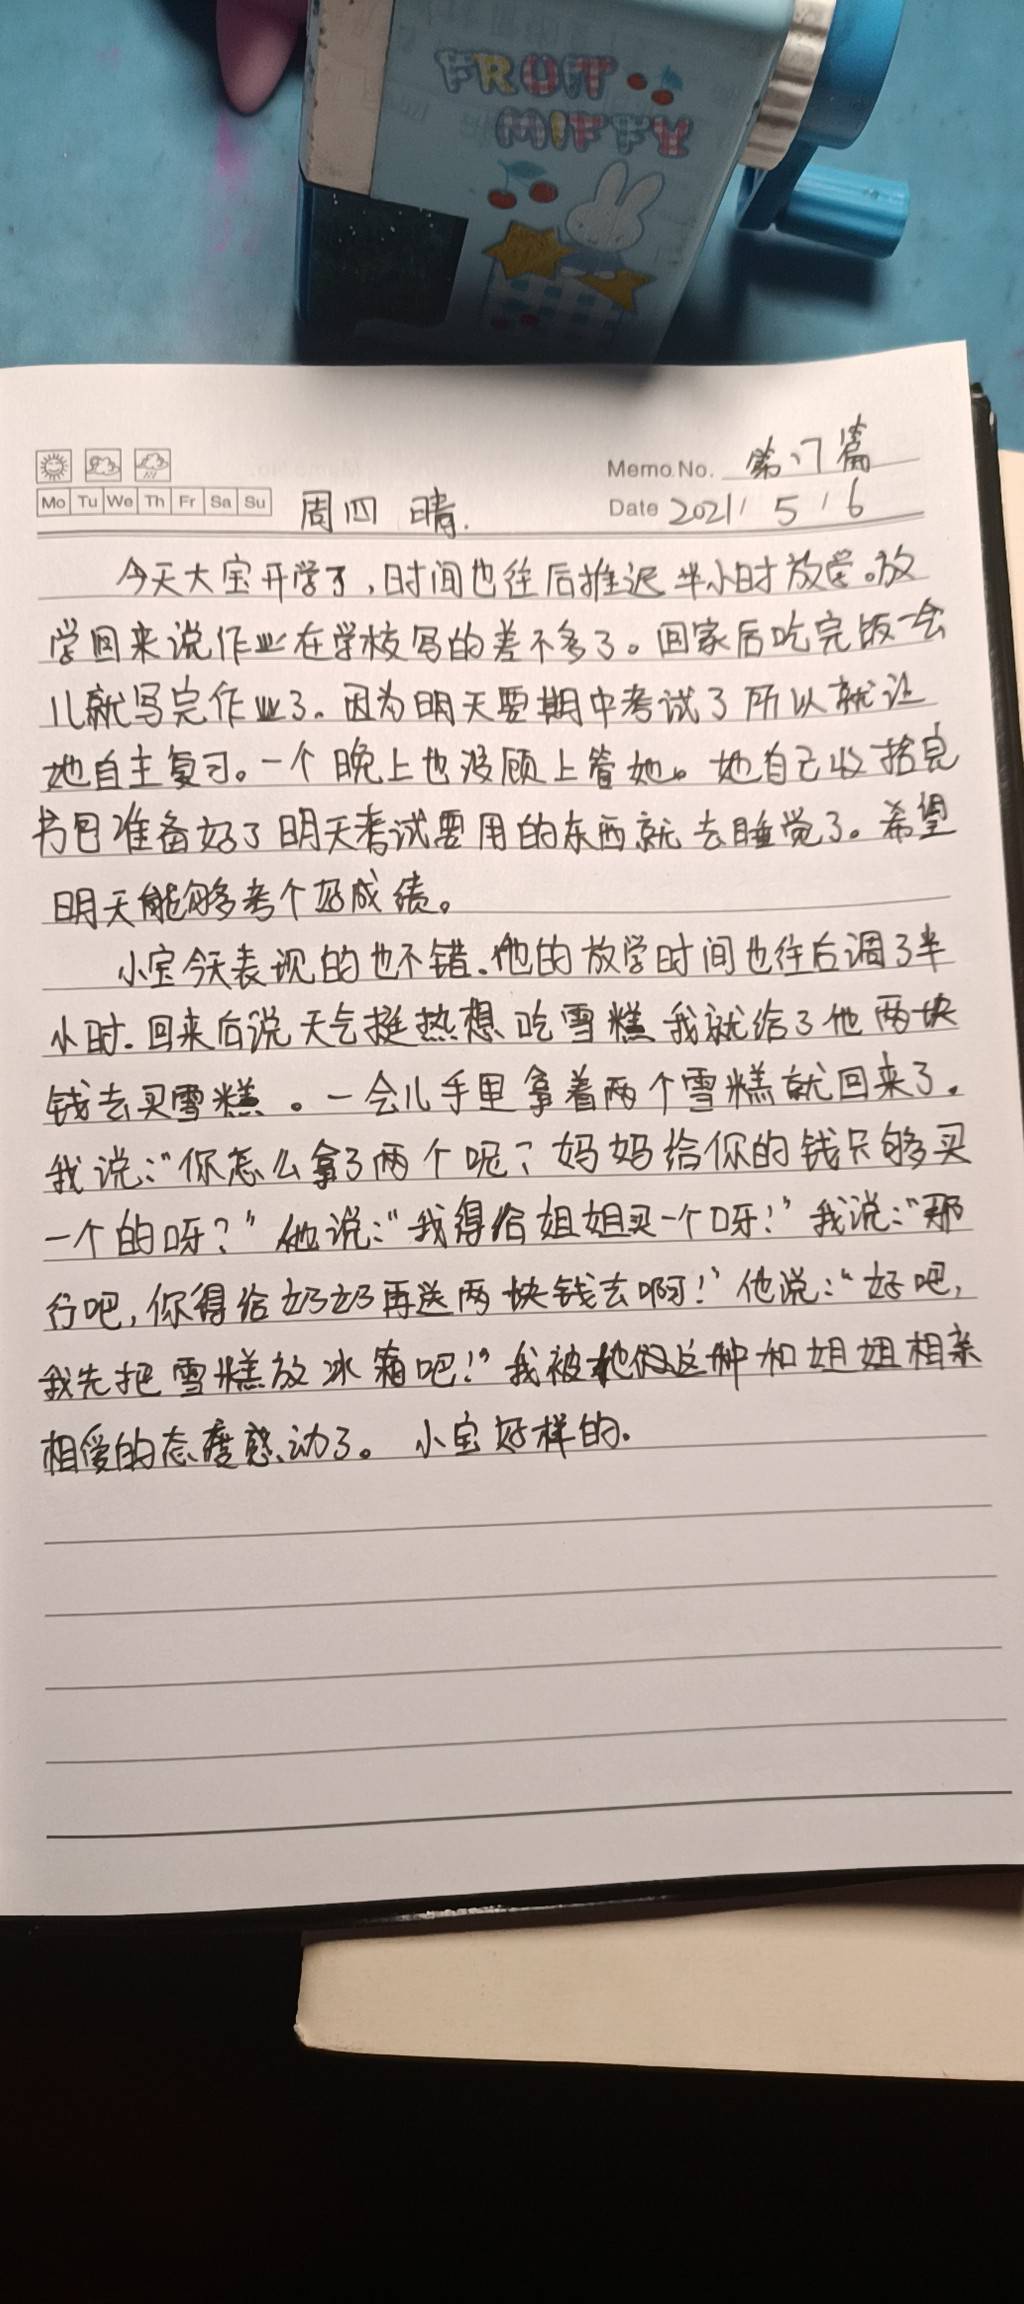 FRUIT
MIFFY
Memo No. 第17篇
Mo Tu We Th Fr Sa Su
周四 晴.
Date 2021/5/6
今天大宝开学了,时间也往后推迟半小时放学。放
学回来说作业在学校写的差不多了。回家后吃完饭一会
儿就写完作业了。因为明天要期中考试了所以就让
她自主复习。一个晚上也没顾上管她。她自己收拾完
书包准备好了明天考试要用的东西就去睡觉了。希望
明天能够考个好成绩。
小宝今天表现的也不错.他的放学时间也往后调了半
小时.回来后说天气挺热想吃雪糕我就给了他两块
钱去买雪糕。一会儿手里拿着两个雪糕就回来了.
我说:“你怎么拿了两个呢?妈妈给你的钱只够买
一个的呀?”他说:“我得给姐姐买一个呀!”我说:“那
行吧,你得给奶奶再送两块钱去啊!”他说:“好吧,
我先把雪糕放冰箱吧!”我被他们这种和姐姐相亲
相爱的态度感动了。小宝好样的.